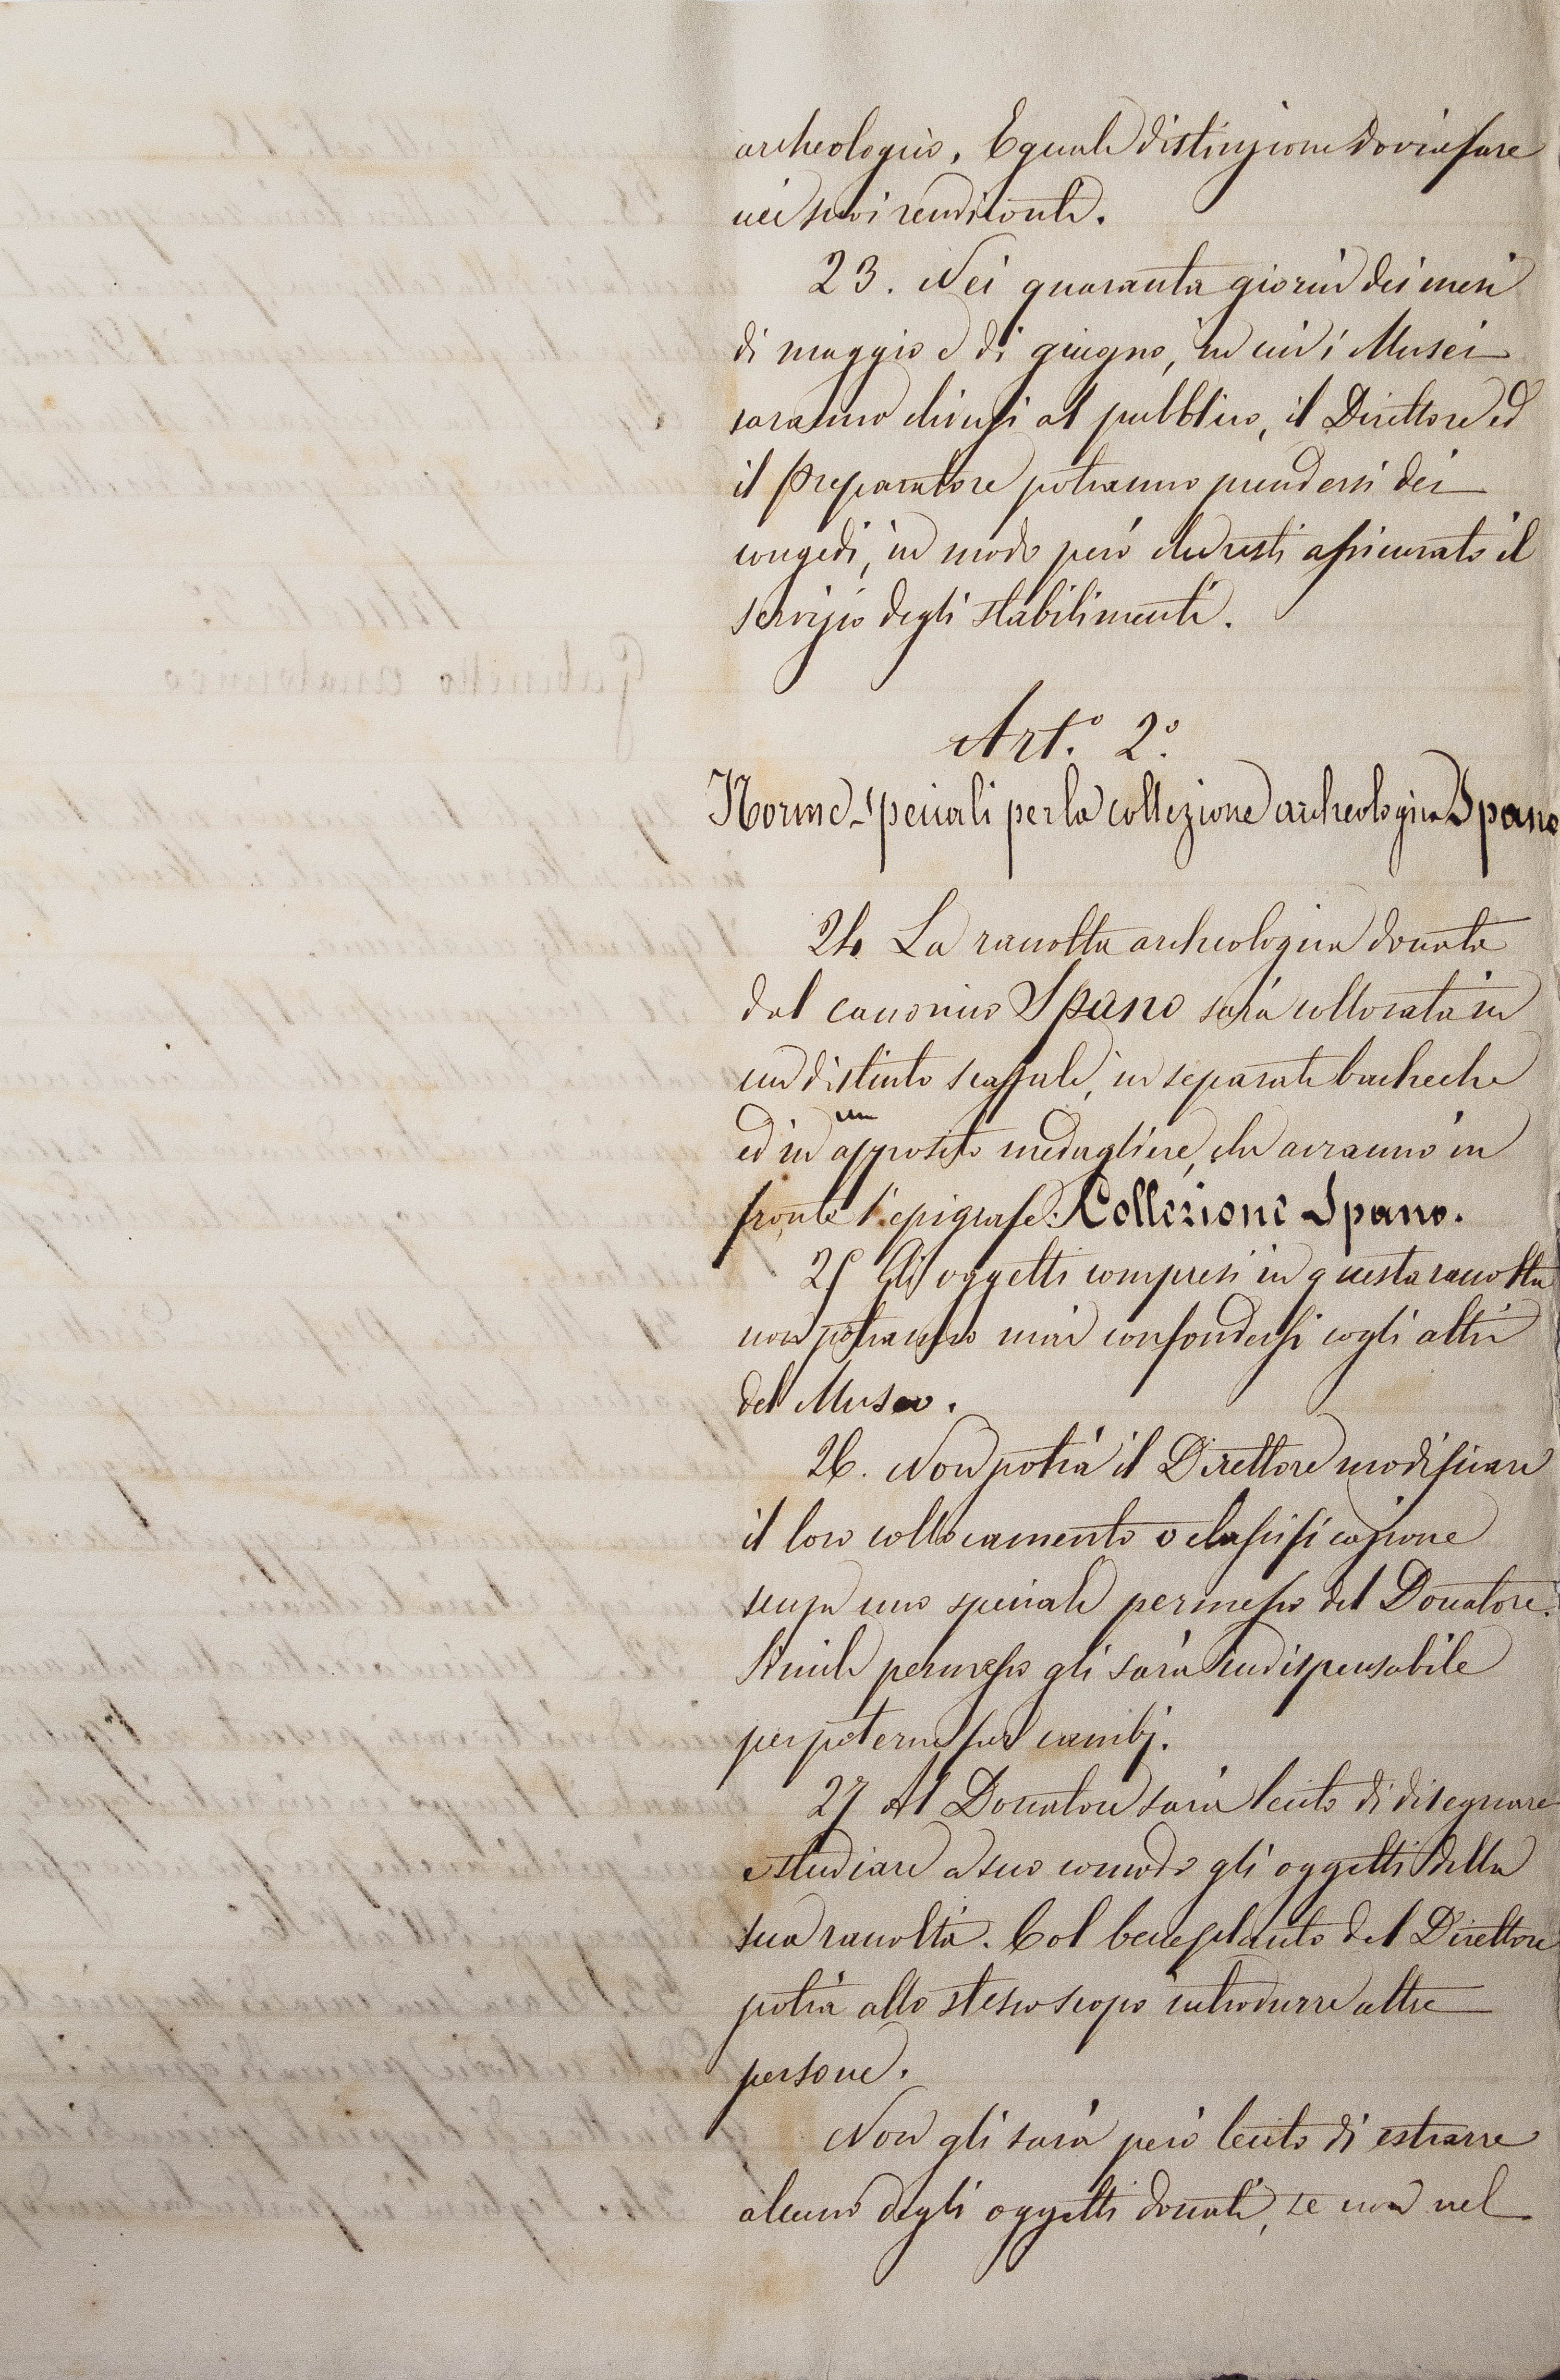 archeologico. Eguale distinzione dovrà fare
nei suoi rendiconti.
23. Nei quaranta giorni dei mesi
di maggio e di giugno, in cui i Musei
saranno chiusi al pubblico, il Direttore ed
il Preparatore potranno prendersi dei
congedi, in modo però che resti assicurato il
servizio degli stabilimenti.
Art.° 2.°
Norme speciali per la collezione archeologica Spano
24 La raccolta archeologica donata
dal canonico Spano sarà collocata in
un distinto scaffale, in separate bacheche
ed in un apposito medagliere, che avranno in
fronte l'epigrafe: Collezione Spano.
25 Gli oggetti compresi in questa raccolta
non potranno mai confondersi cogli altri
del Museo.
26. Non potrà il Direttore modificare
il loro collocamento o classificazione
senza uno speciale permesso del Donatore.
Simile permesso gli sarà indispensabile
per poterne far cambj.
27 Al Donatore sarà lecito di disegnare
e studiare a suo comodo gli oggetti della
sua raccolta. Col beneplacito del Direttore
potrà allo stesso scopo introdurre altre
persone.
Non gli sarà però lecito di estrarre
alcuno degli oggetti donati, se non nel